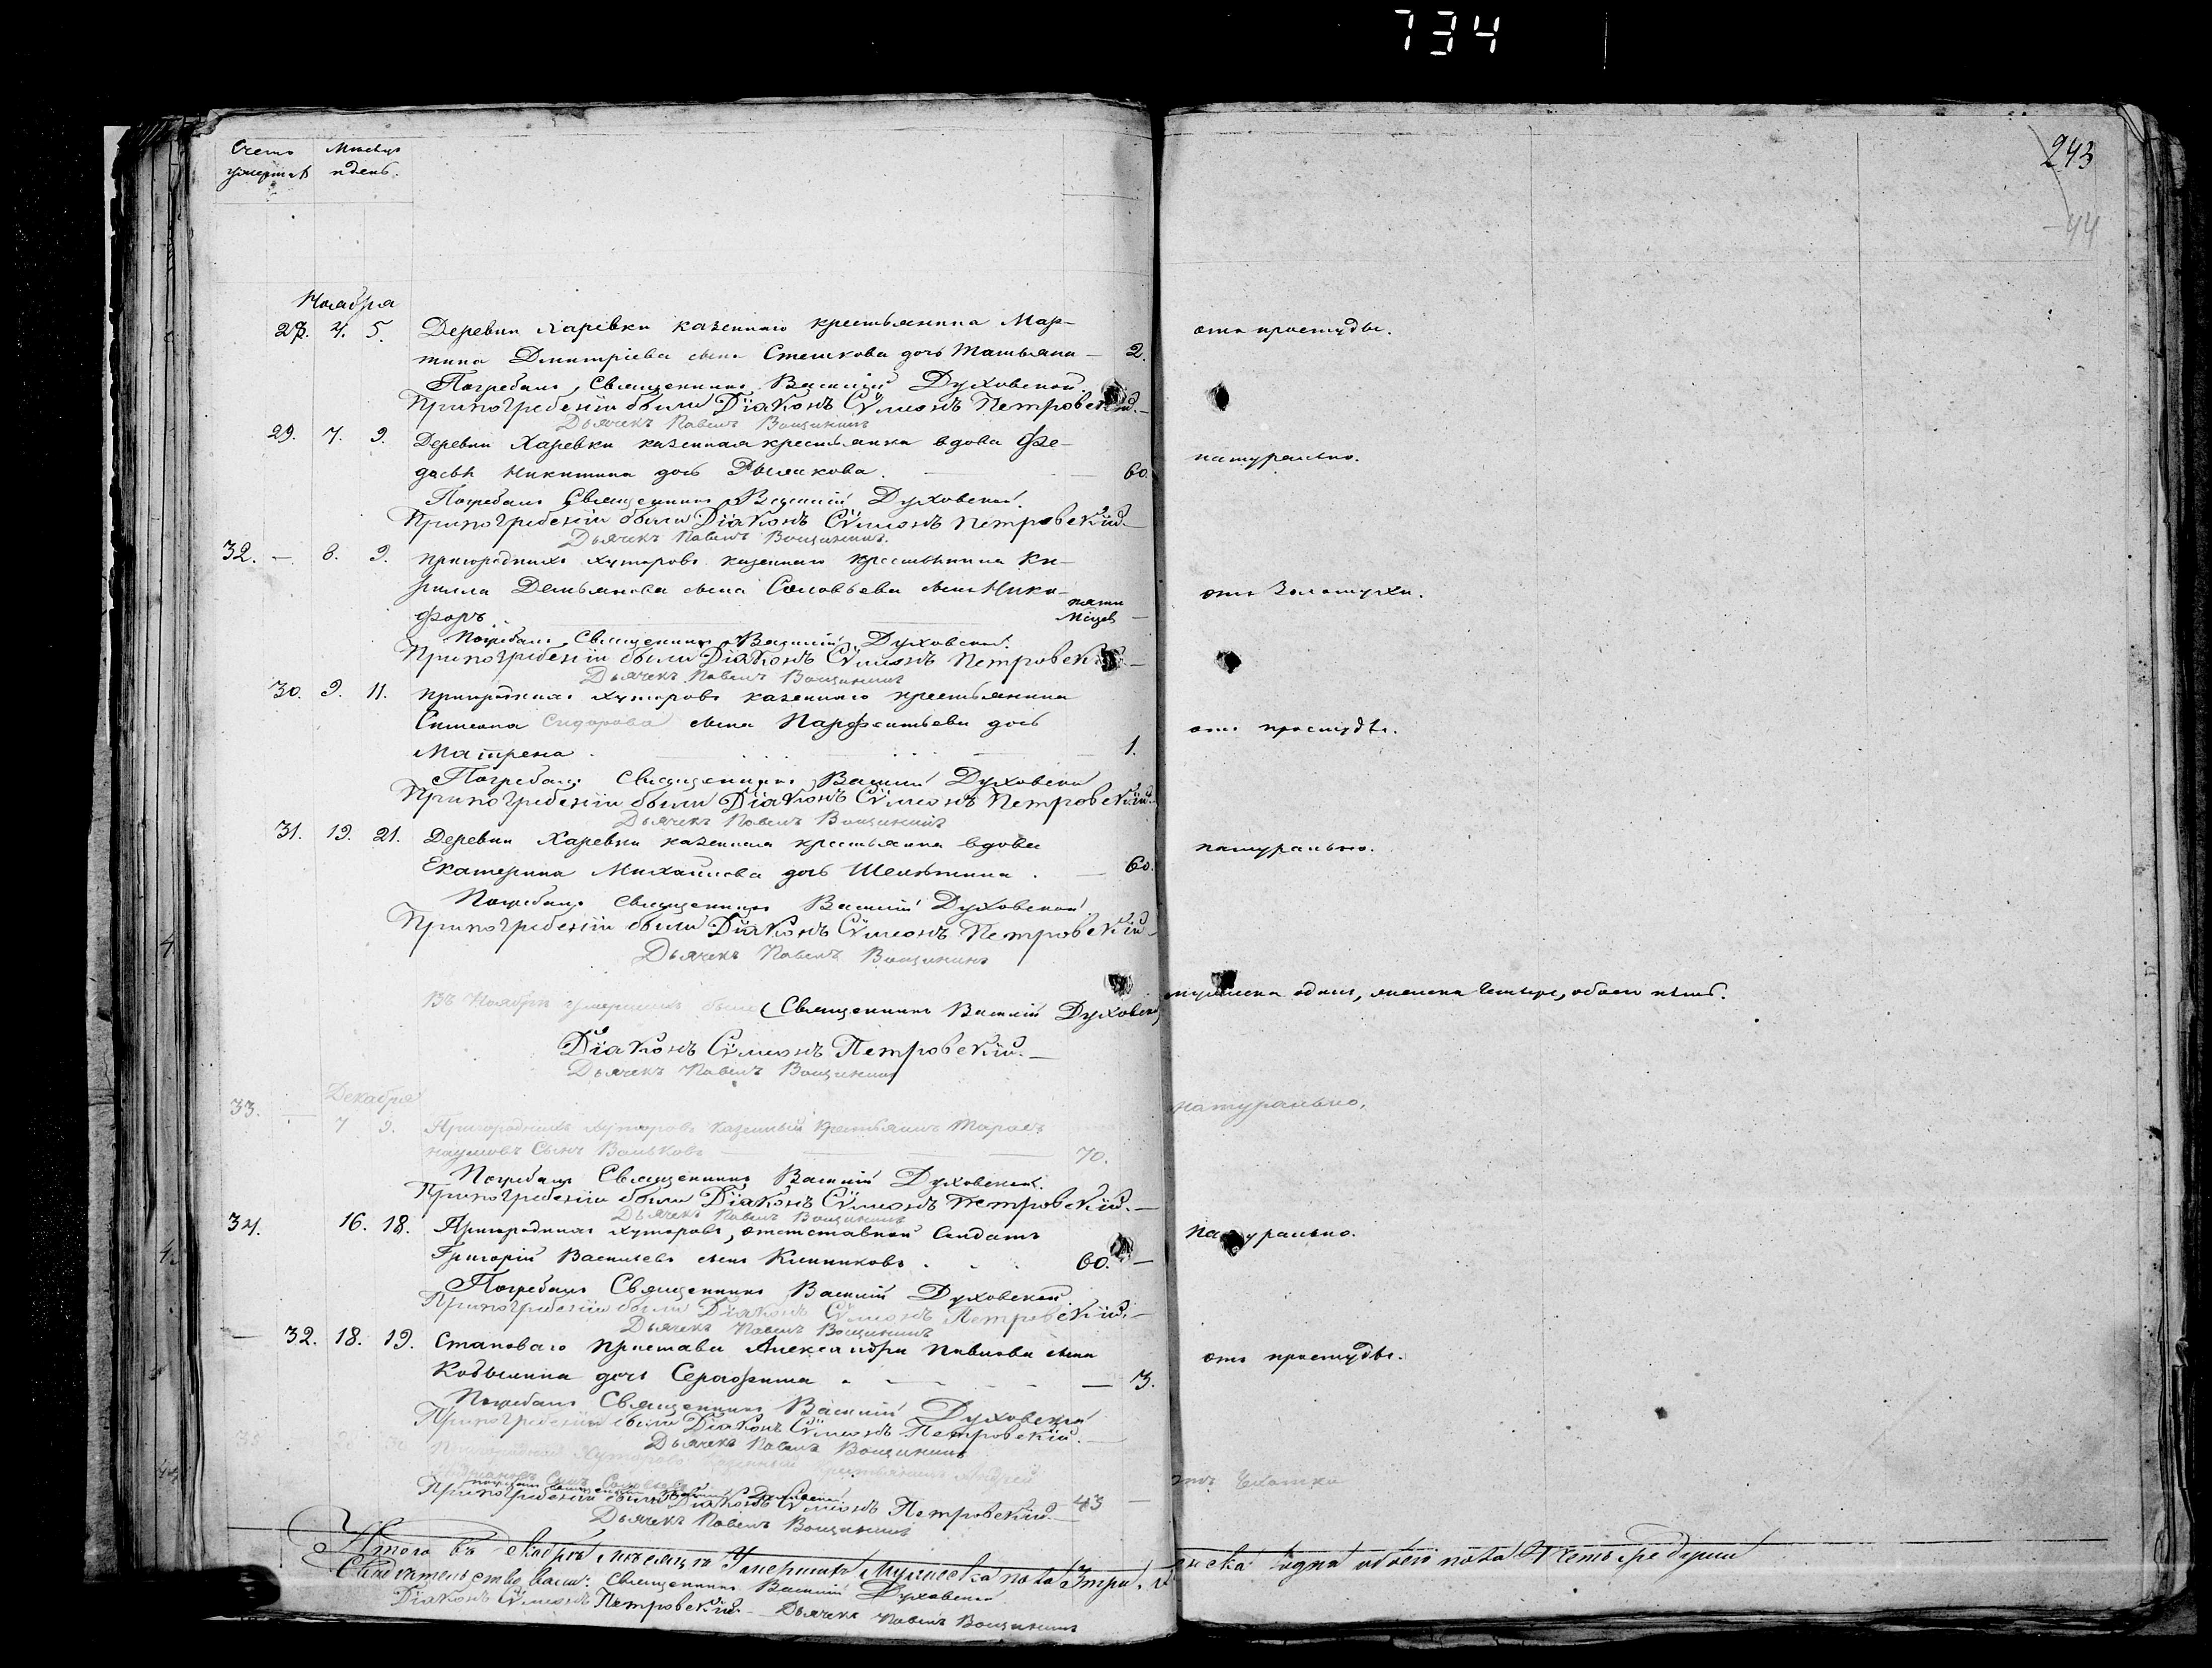 734
243
44
Счетъ Месяцъ
умершихъ и день.
Ноября
28. 4. 5. Деревни Харевки казеннаго крестьянина Мар-
тина Дмитріева сына Стешкова дочь Татьяна — 2. отъ простуды.
Погребалъ Священникъ Василій Духовской.
При погребеніи были Діаконъ Сѵмеонъ Петровскій.—
Дьячекъ Павелъ Вощининъ
29. 7. 9. Деревни Харевки казенная крестьянка вдова Ѳе-
досья Никитина дочь 60. натурально.
Погребалъ Священникъ Василій Духовской.
При погребеніи были Діаконъ Сѵмеонъ Петровскій.—
Дьячекъ Павелъ Вощининъ.
32. — 8. 9. Пригородныхъ хуторовъ казеннаго крестьянина Ки-
рилла Демьянова сына Соловьева сынъ Ники-
форъ. пяти месцев — отъ Золотухи.
Погребалъ Священникъ Василій Духовской.
При погребеніи были Діаконъ Сѵмеонъ Петровскій.—
Дьячекъ Павелъ Вощининъ
30. 9. 11. Пригородныхъ хуторовъ казеннаго крестьянина
Симеона Сидорова сына Парфентьева дочь
Матрена. 1. отъ простуды.
Погребалъ Священникъ Василій Духовской
При погребеніи были Діаконъ Сѵмеонъ Петровскій.
Дьячекъ Павелъ Вощининъ
31. 19. 21. Деревни Харевки казенная крестьянка вдова
Екатерина Михайлова дочь . — 60. натурально.
Погребалъ Священникъ Василій Духовской.
При погребеніи были Діаконъ Сѵмеонъ Петровскій
Дьячекъ Павелъ Вощининъ
Въ Ноябре умершихъ было мужеска одинъ, женска Четыре, обоего пять.
Священникъ Василій Духовской
Діаконъ Сѵмеонъ Петровскій.—
Дьячекъ Павелъ Вощининъ
Декабря
33. — 7 9. Пригородныхъ хуторовъ казенный крестьянинъ Тарасъ
Наумовъ Сынъ Вальковъ — 70. натурально,
Погребалъ Священникъ Василій Духовской.
При погребеніи были Діаконъ Сѵмеонъ Петровскій.—
Дьячекъ Павелъ Вощининъ
34. 16. 18. Пригородныхъ хуторовъ, отставной Солдатъ
Григорій Васильевъ сынъ Климниковъ . 60. — натурально.
Погребалъ Священникъ Василій Духовской
При погребеніи были Діаконъ Сѵмеонъ Петровскій.—
Дьячекъ Павелъ Вощининъ
— 32. 18. 19. Становаго Пристава Александра Павлова сына
Кобылина дочь Серафима — 3. отъ простуды.
Погребалъ Священникъ Василій Духовской
При погребеніи были Діаконъ Сѵмеонъ Петровскій.—
Дьячекъ Павелъ Вощининъ
Хуторовъ казенный крестьянинъ Андрей
Сынъ 43 — отъ Чахотки
погребалъ Священникъ Василій Духовской
При погребеніи были Діаконъ Сѵмеонъ Петровскій.—
Дьячекъ Павелъ Вощининъ
Итого въ декабре месяце Умершихъ Мужеска пола 3 три, женска 1 одна обоего пола 4 Четыре души
Свидетельствовали: Священникъ Василій Духовской
Діаконъ Сѵмеонъ Петровскій — Дьячекъ Павелъ Вощининъ